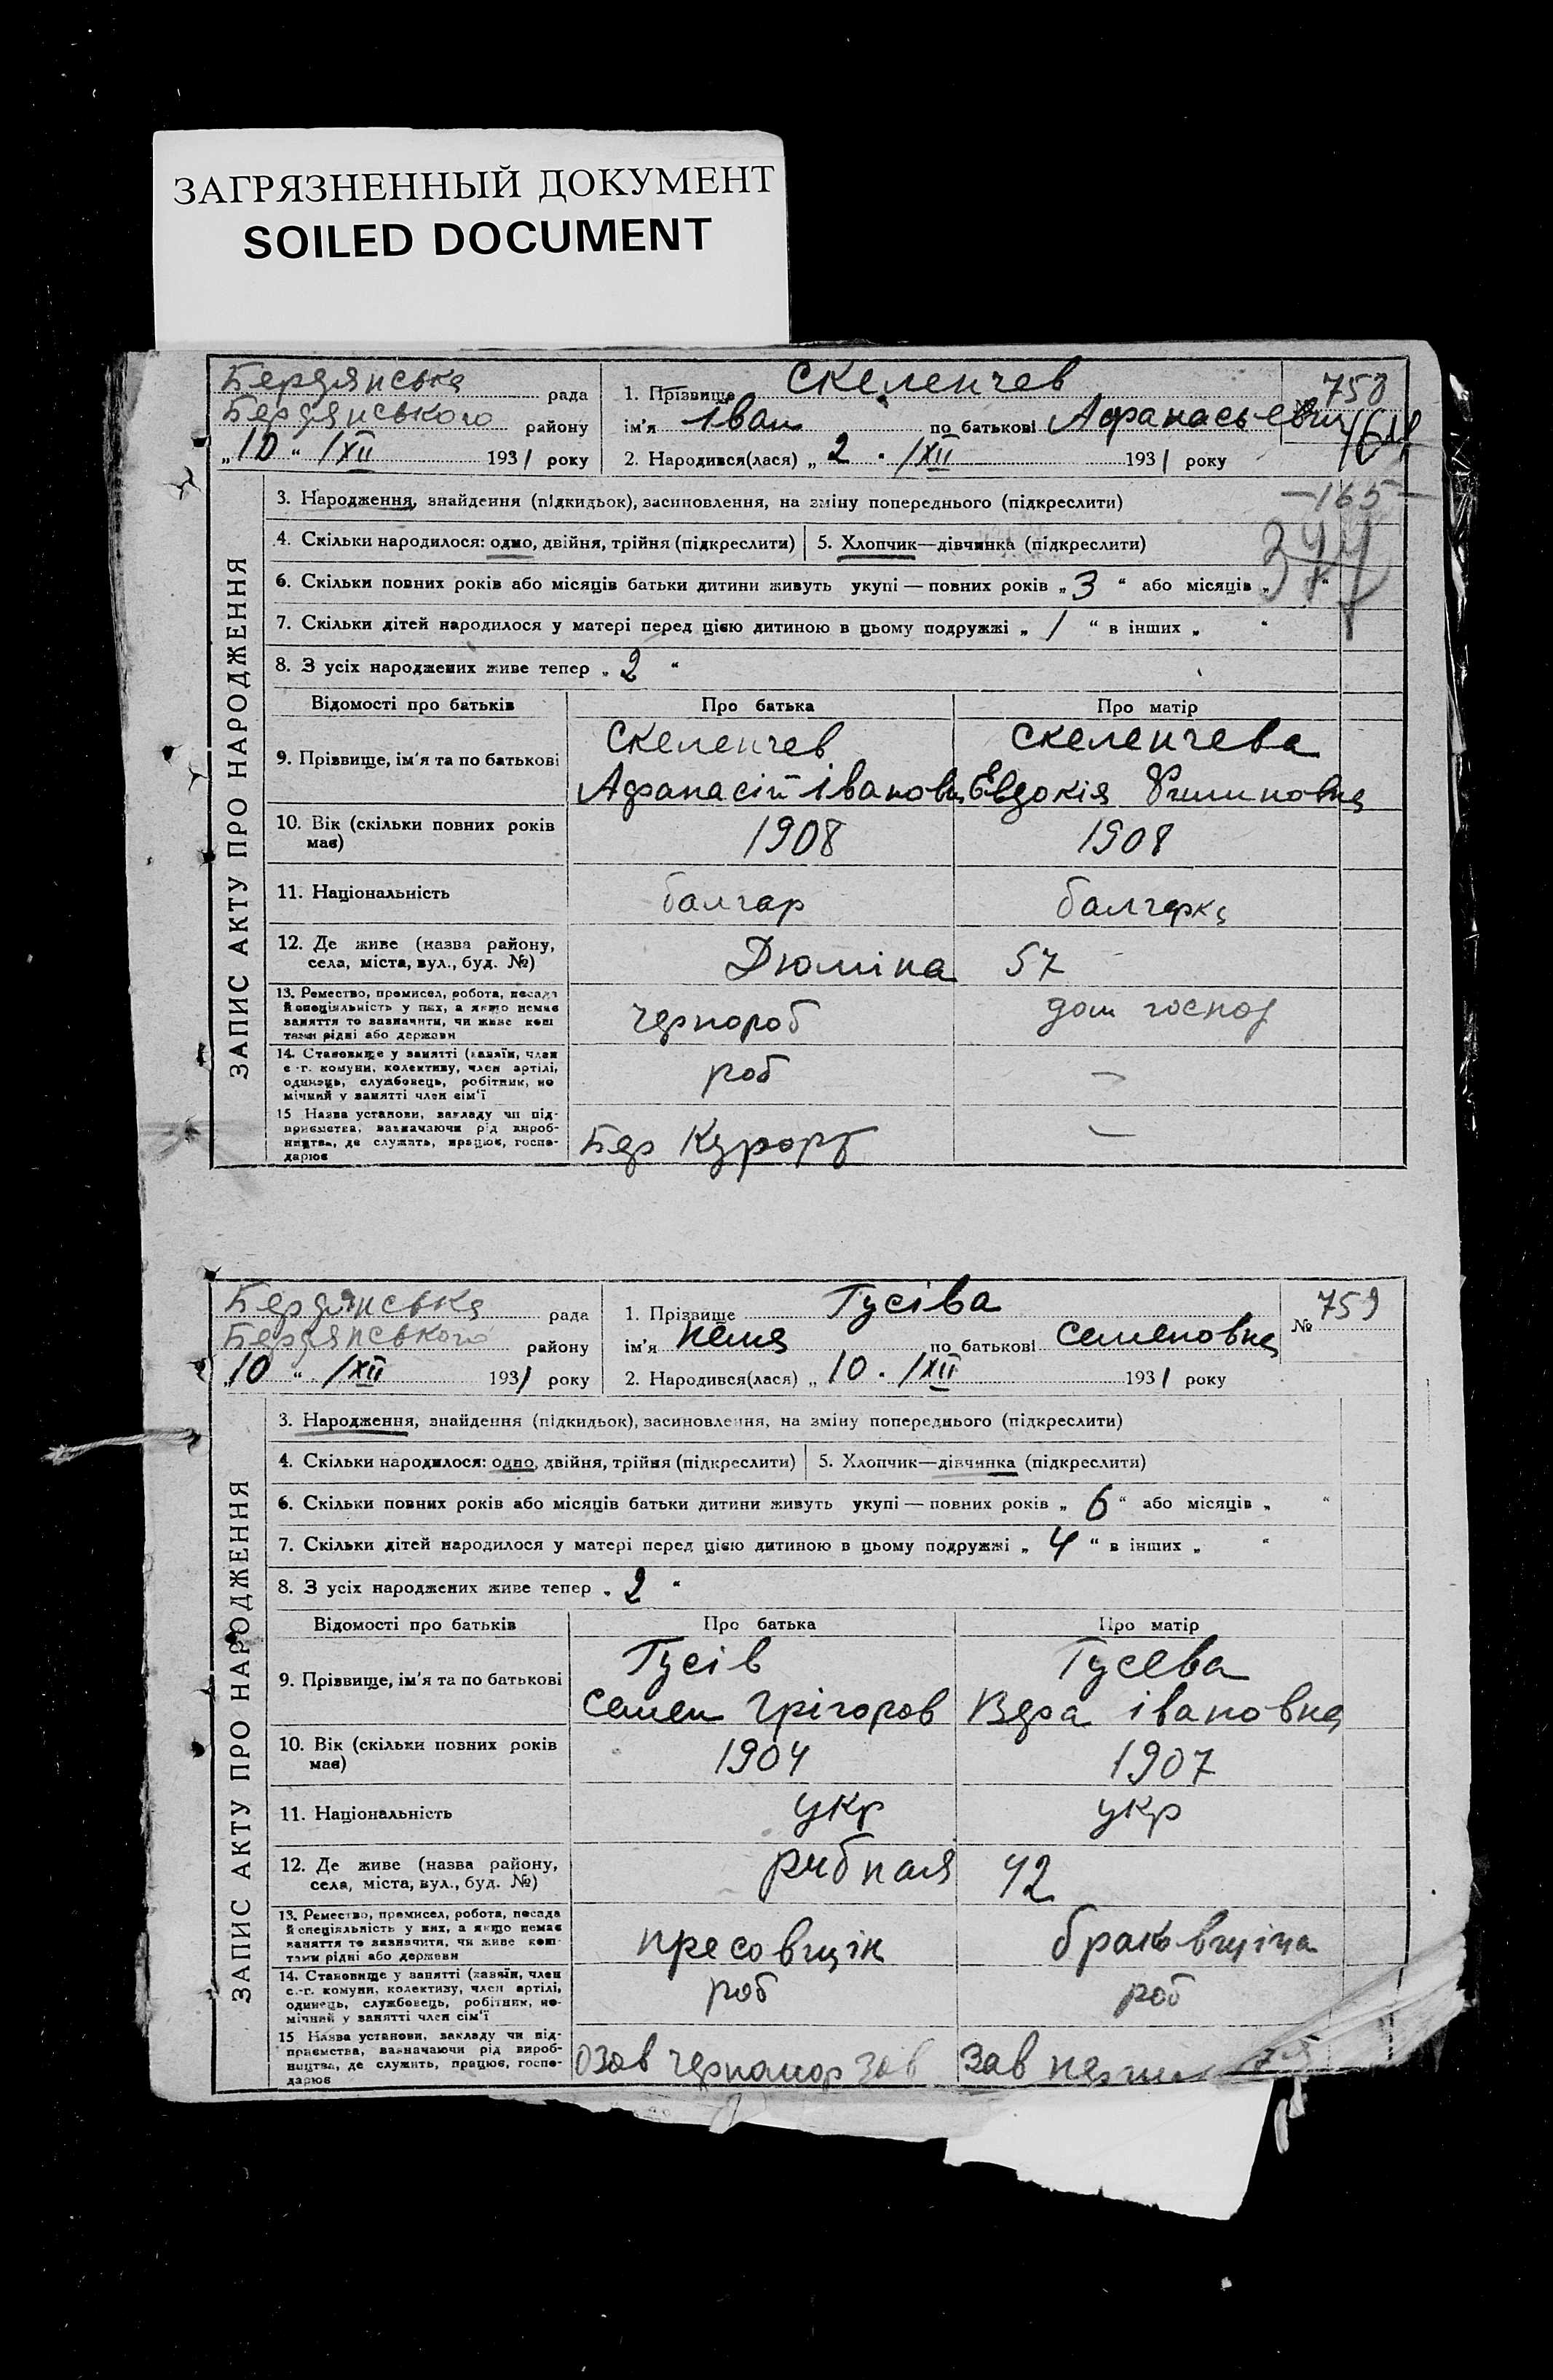 ЗАГРЯЗНЕННЫЙ ДОКУМЕНТ
SOILED DOCUMENT
ЗАПИС АКТУ ПРО НАРОДЖЕННЯ
Бердянська рада
Бердянського району
„10“ /XII 1931 року
1. Прізвище Скеленчев
ім'я Іван по батькові Афанасьевич
2. Народився(лася) „2. /XII 1931 року
758
—165—
3. Народження, знайдення (підкидьок), засиновлення, на зміну попереднього (підкреслити)
4. Скільки народилося: одно, двійня, трійня (підкреслити) 5. Хлопчик—дівчинка (підкреслити)
6. Скільки повних років або місяців батьки дитини живуть укупі — повних років „3“ або місяців „ “
7. Скільки дітей народилося у матері перед цією дитиною в цьому подружжі „1“ в інших „ “
8. З усіх народжених живе тепер „2“
Відомості про батьків Про батька Про матір
9. Прізвище, ім'я та по батькові
Скеленчев
Афанасій Іванови
Скеленчева
Евдокія
10. Вік (скільки повних років має) 1908 1908
11. Національність балгар балгарка
12. Де живе (назва району, села, міста, вул., буд. №) Дюміна 57
13. Ремество, промисел, робота, посада й спеціяльність у них, а якщо немає заняття то зазначити, чи живе коштами рідні або держави
чернороб дом господ
14. Становище у занятті (хазяїн, член с.-г. комуни, колективу, член артілі, одинець, службовець, робітник, помічний у занятті член сім'ї
роб —
15 Назва установи, закладу чи підприємства, зазначаючи рід виробництва, де служить, працює, господарює
Бер Курорт —
ЗАПИС АКТУ ПРО НАРОДЖЕННЯ
Бердянська рада
Бердянського району
„10“ /XII 1931 року
1. Прізвище Гусіва
ім'я по батькові Семеновна
2. Народився(лася) „10. /XII 1931 року
№ 759
3. Народження, знайдення (підкидьок), засиновлення, на зміну попереднього (підкреслити)
4. Скільки народилося: одно, двійня, трійня (підкреслити) 5. Хлопчик—дівчинка (підкреслити)
6. Скільки повних років або місяців батьки дитини живуть укупі — повних років „6“ або місяців „ “
7. Скільки дітей народилося у матері перед цією дитиною в цьому подружжі „4“ в інших „ “
8. З усіх народжених живе тепер „2“
Відомості про батьків Про батька Про матір
9. Прізвище, ім'я та по батькові
Гусів
Семен Грігоров
Гусева
Вера Івановна
10. Вік (скільки повних років має) 1904 1907
11. Національність укр укр
12. Де живе (назва району, села, міста, вул., буд. №) рибная 42
13. Ремество, промисел, робота, посада й спеціяльність у них, а якщо немає заняття то зазначити, чи живе коштами рідні або держави
пресовщік
14. Становище у занятті (хазяїн, член с.-г. комуни, колективу, член артілі, одинець, службовець, робітник, помічний у занятті член сім'ї
роб роб
15 Назва установи, закладу чи підприємства, зазначаючи рід виробництва, де служить, працює, господарює
зав